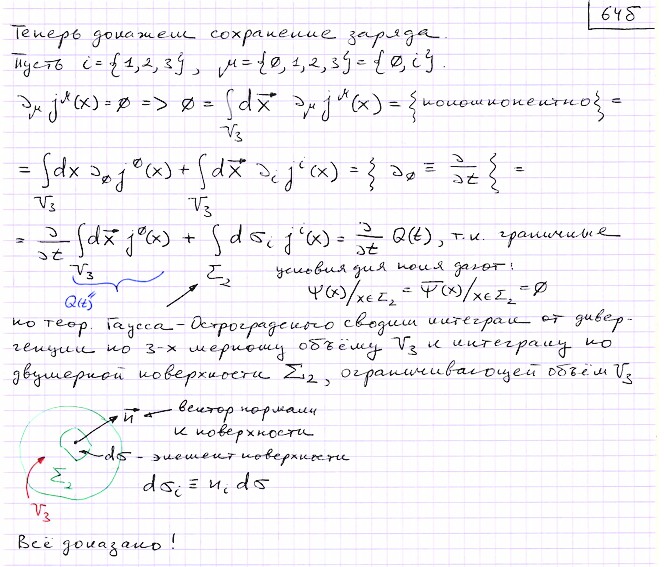 64б
Теперь докажем сохранение заряда.
Пусть i={1,2,3}, μ={0,1,2,3}={0,i}.
∂μ j^μ(x)=0 => 0 = ∫_{V₃} dx⃗ ∂μ j^μ(x) = {покомпонентно} =
= ∫_{V₃} dx ∂₀ j⁰(x) + ∫_{V₃} dx⃗ ∂ᵢ jⁱ(x) = { ∂₀ ≡ ∂/∂t } =
= ∂/∂t ∫_{V₃} dx⃗ j⁰(x) + ∫_{Σ₂} dσᵢ jⁱ(x) = ∂/∂t Q(t), т.к. граничные
условия для поля дают:
Q(t)"
Ψ(x)/_{x∈Σ₂} = Ψ̅(x)/_{x∈Σ₂} = 0
по теор. Гаусса-Остроградского сводим интеграл от дивер-
генции по 3-х мерному объёму V₃ к интегралу по
двумерной поверхности Σ₂, ограничивающей объём V₃
n⃗ вектор нормали
к поверхности
dσ - элемент поверхности
Σ₂
dσᵢ ≡ nᵢ dσ
V₃
Всё доказано!